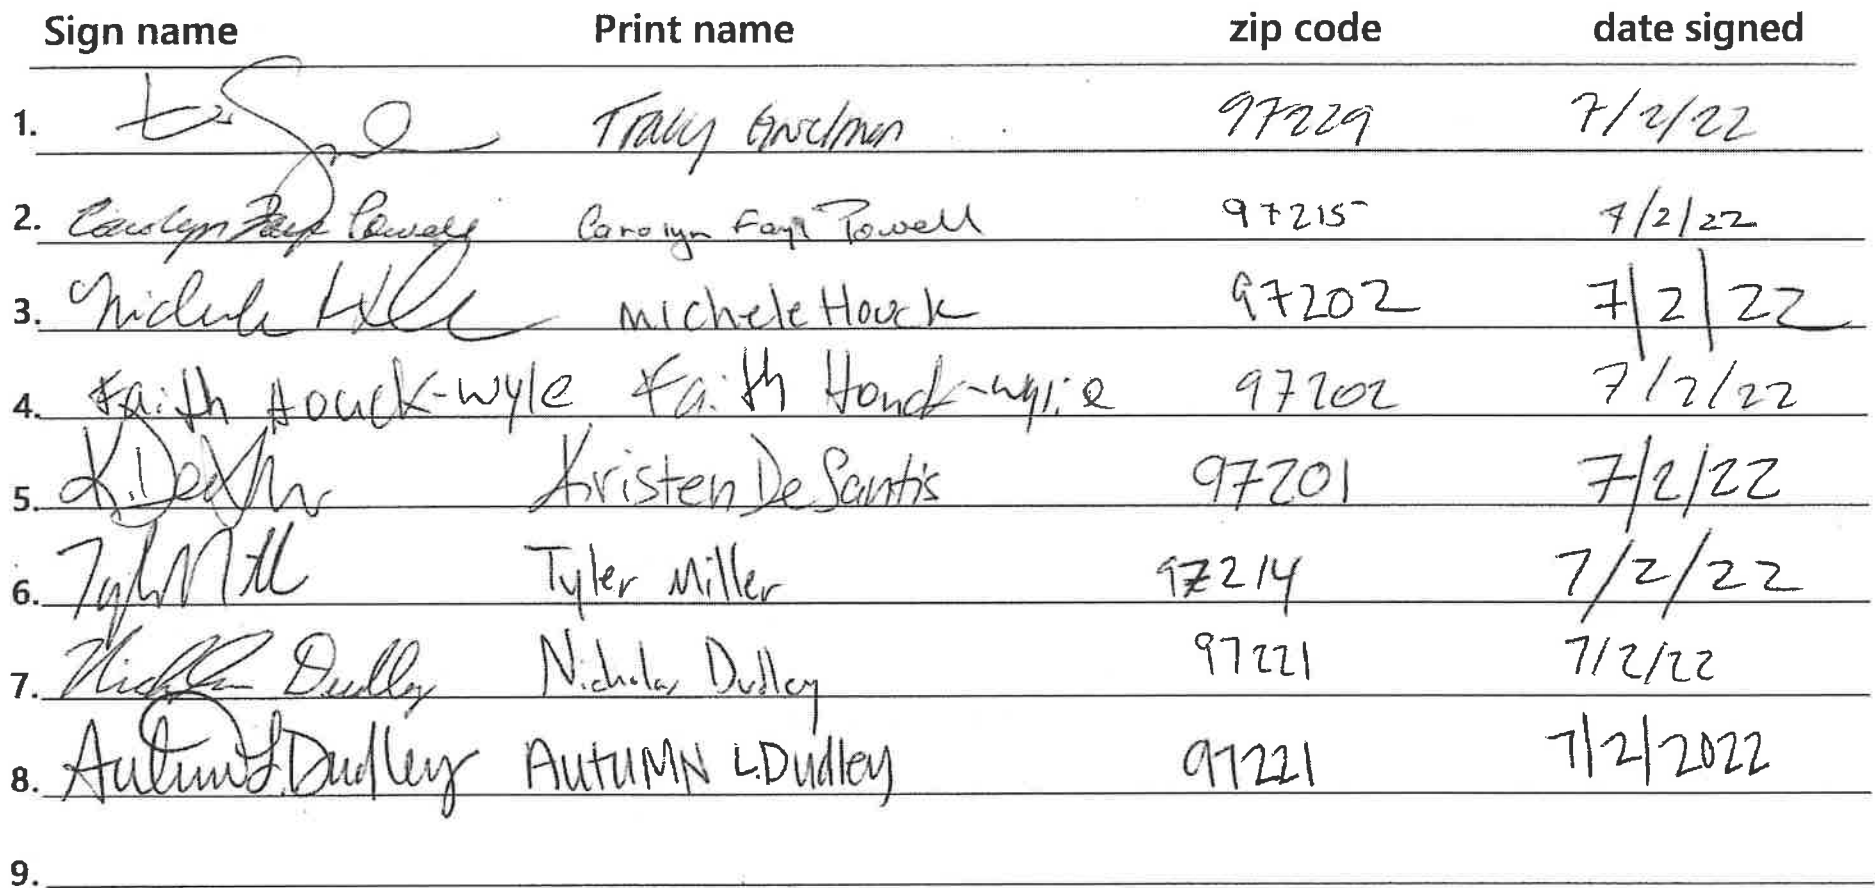 Sign name Print name zip code date signed
1. Tracy 97229 7/2/22
2. Carolyn Faye Powell Carolyn Faye Powell 97215 7/2/22
3. Michele Michele Houck 97202 7/2/22
4. Faith Houck-Wyle Faith Houck-Wylie 97202 7/2/22
5. K. Kristen DeSantis 97201 7/2/22
6. Tyler Miller 97214 7/2/22
7. Nicholas Dudley Nicholas Dudley 97221 7/2/22
8. Autumn L. Dudley AUTUMN L. Dudley 97221 7/2/2022
9.